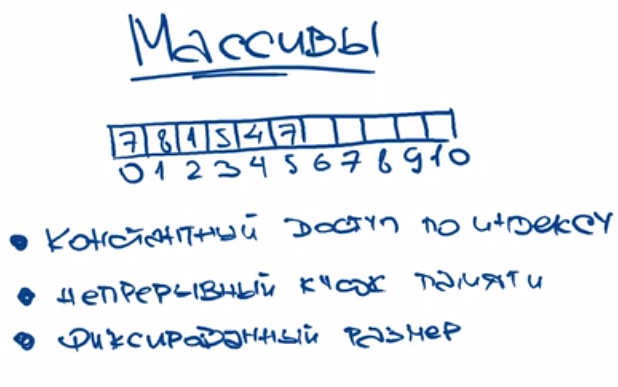 Массивы
7 8 1 5 4 7
0 1 2 3 4 5 6 7 8 9 10
• константный доступ по индексу
• непрерывный кусок памяти
• фиксированный размер